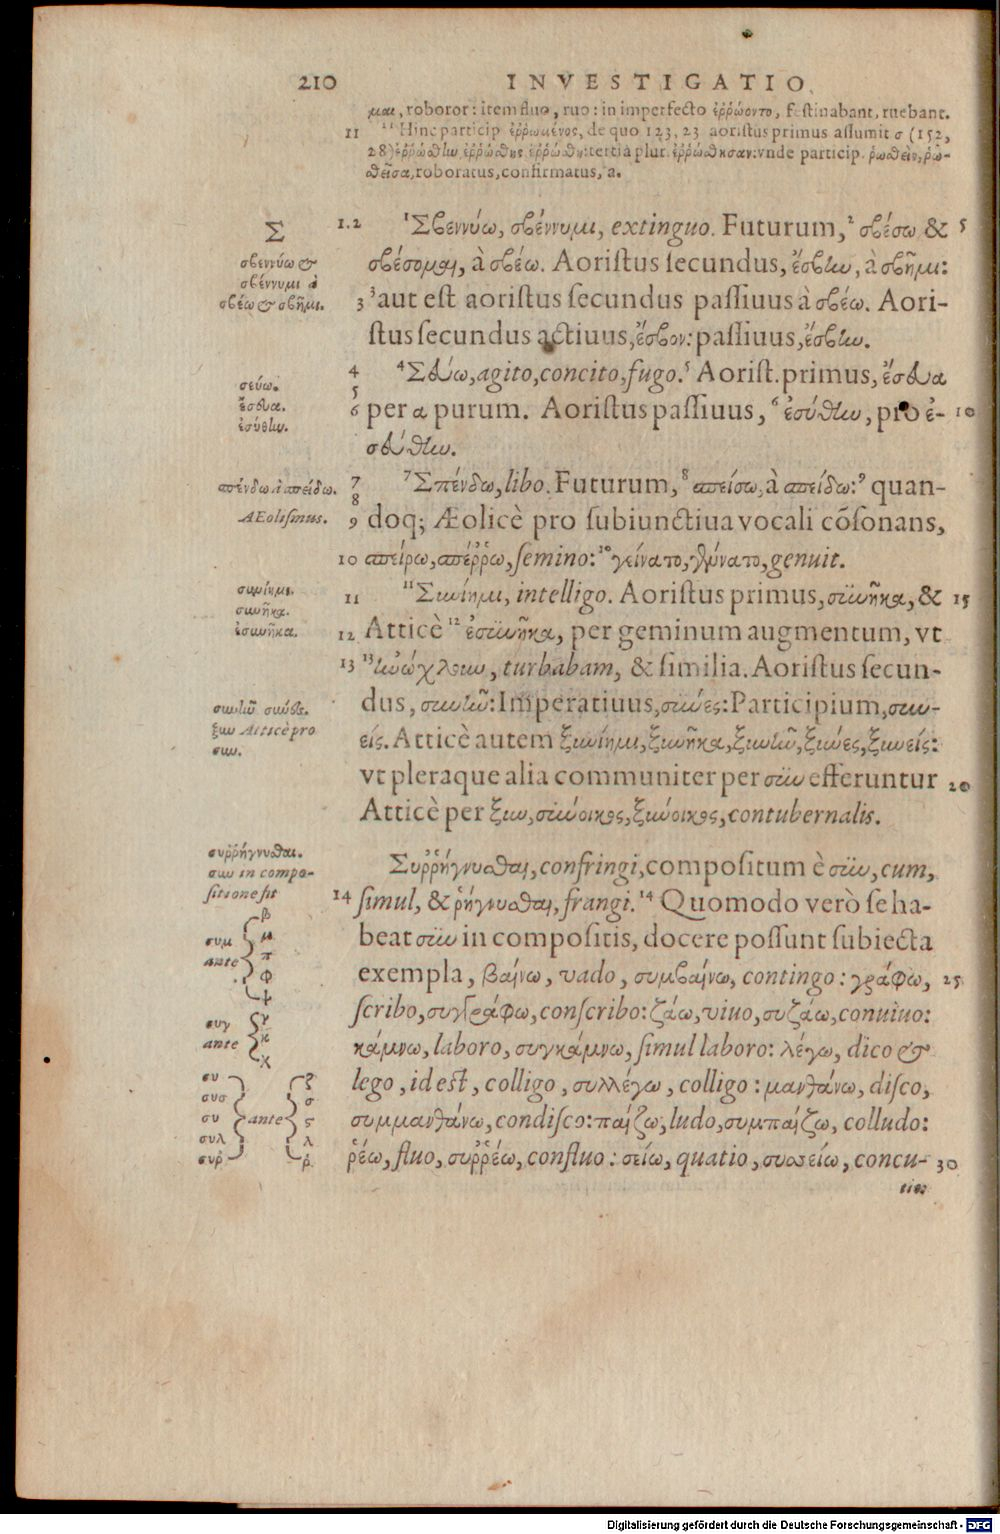 210 INVESTIGATIO
μαι, roboror: item fluo, ruo: in imperfecto ἐῤῥώοντο, festinabant, ruebant.
11 ¹¹ Hinc particip ἐῤῥωμένος, de quo 123, 23 aoristus primus assumit σ (152,
28) ἐῤῥώσθην ἐῤῥώσθης ἐῤῥώσθη: tertia plur. ἐῤῥώσθησαν: vnde particip. ῥωσθεὶς, ῥω-
σθεῖσα, roboratus, confirmatus, a.
Σ
σβεννύω &
σβέννυμι à
σβέω & σβῆμι.
1.2 ¹Σβεννύω, σβέννυμι, extinguo. Futurum, ² σβέσω & 5
σβέσομαι, à σβέω. Aoristus secundus, ἔσβην, à σβῆμι:
3 ³aut est aoristus secundus passiuus à σβέω. Aori-
stus secundus actiuus, ἔσβον: passiuus, ἔσβην.
σεύω.
ἔσευα.
ἐσύθην.
4 ⁴Σεύω, agito, concito, fugo. ⁵ Aorist. primus, ἔσευα
5
6 per α purum. Aoristus passiuus, ⁶ ἐσύθην, pro ἐ- 10
σεύθην.
σπένδω à σπείδω.
AEolismus.
7 ⁷Σπένδω, libo. Futurum, ⁸ σπείσω, à σπείδω: ⁹ quan-
8
9 doq; Æolicè pro subiunctiua vocali cōsonans,
10 σπείρω, σπέῤῥω, semino: ¹⁰ γείνατο, γέννατο, genuit.
συνίημι.
συνῆκα.
ἐσυνῆκα.
11 ¹¹Συνίημι, intelligo. Aoristus primus, συνῆκα, & 15
12 Atticè ¹² ἐσυνῆκα, per geminum augmentum, vt
13 ¹³ἠνώχλουν, turbabam, & similia. Aoristus secun-
συνῆν σύνες.
ξυν Atticè pro
συν.
dus, συνῆν: Imperatiuus, σύνες: Participium, συν-
είς. Atticè autem ξυνίημι, ξυνῆκα, ξυνῆν, ξύνες, ξυνείς:
vt pleraque alia communiter per σὺν efferuntur 20
Atticè per ξυν, σύνοικος, ξύνοικος, contubernalis.
συῤῥήγνυσθαι.
συν in compo-
sitione fit
Συῤῥήγνυσθαι, confringi, compositum è σὺν, cum,
14 simul, & ῥήγνυσθαι, frangi. ¹⁴ Quomodo verò se ha-
beat σὺν in compositis, docere possunt subiecta
exempla, βαίνω, vado, συμβαίνω, contingo: γράφω, 25
scribo, συγγράφω, conscribo: ζάω, viuo, συζάω, conuiuo:
κάμνω, laboro, συγκάμνω, simul laboro: λέγω, dico &
lego, id est, colligo, συλλέγω, colligo: μανθάνω, disco,
συμμανθάνω, condisco: παίζω, ludo, συμπαίζω, colludo:
ῥέω, fluo, συῤῥέω, confluo: σείω, quatio, συσσείω, concu- 30
tio:
συμ ante β μ π φ ψ
συγ ante γ κ χ
συ συσ συ συλ συῤ ante ζ σ ς λ ῥ
Digitalisierung gefördert durch die Deutsche Forschungsgemeinschaft - DFG